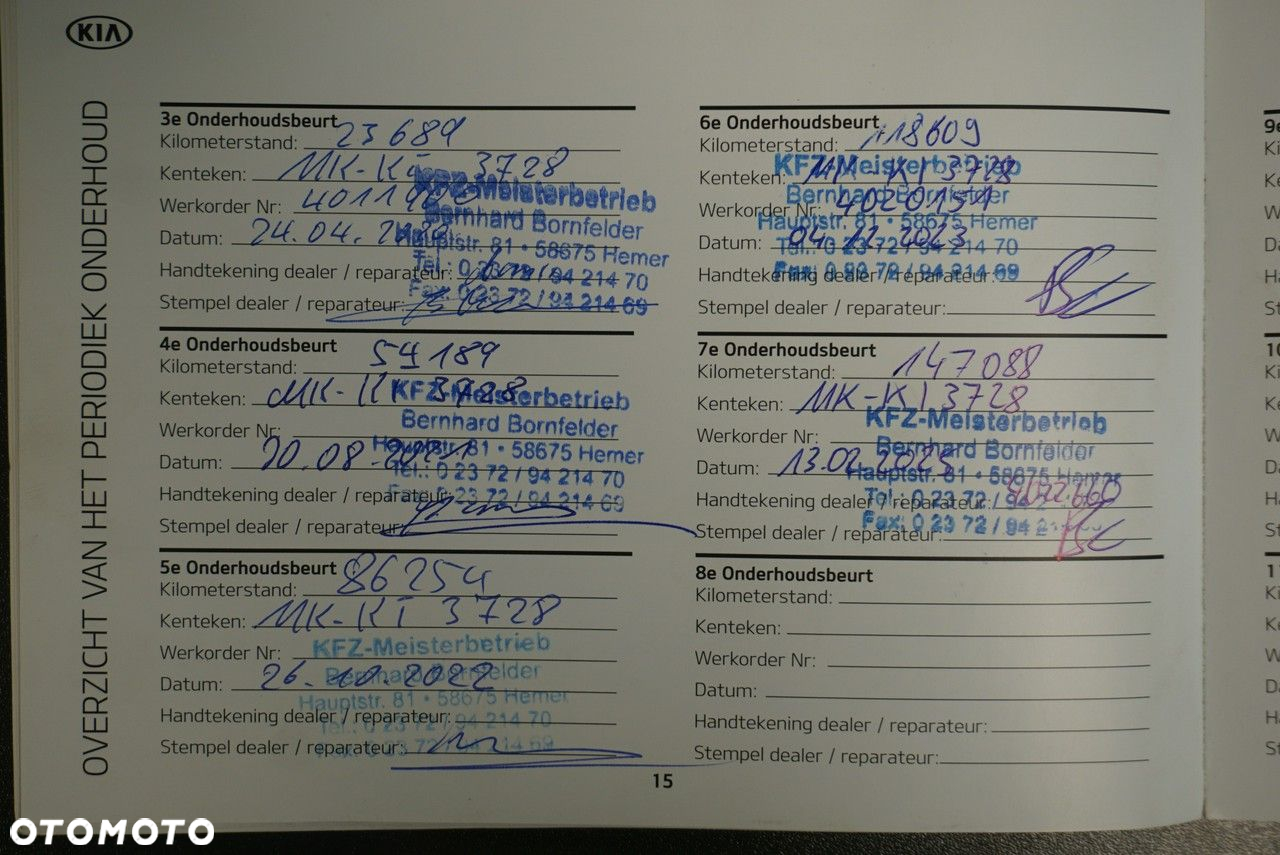 KIA
OVERZICHT VAN HET PERIODIEK ONDERHOUD
3e Onderhoudsbeurt
Kilometerstand: 23689
Kenteken: MK-KI 3728
Werkorder Nr:
Datum: 24.04.
Handtekening dealer / reparateur:
Stempel dealer / reparateur:
KFZ-Meisterbetrieb
Bernhard Bornfelder
Hauptstr. 81 • 58675 Hemer
Tel.: 0 23 72 / 94 214 70
Fax: 0 23 72 / 94 214 69
4e Onderhoudsbeurt
Kilometerstand: 54189
Kenteken: MK-KI 3728
Werkorder Nr:
Datum: 08
Handtekening dealer / reparateur:
Stempel dealer / reparateur:
KFZ-Meisterbetrieb
Bernhard Bornfelder
Hauptstr. 81 • 58675 Hemer
Tel.: 0 23 72 / 94 214 70
Fax: 0 23 72 / 94 214 69
5e Onderhoudsbeurt
Kilometerstand: 86254
Kenteken: MK-KI 3728
Werkorder Nr:
Datum: 26.10.2022
Handtekening dealer / reparateur:
Stempel dealer / reparateur:
KFZ-Meisterbetrieb
Bernhard Bornfelder
Hauptstr. 81 • 58675 Hemer
Tel.: 0 23 72 / 94 214 70
Fax: 0 23 72 / 94 214 69
6e Onderhoudsbeurt
Kilometerstand: 118609
Kenteken: MK-KI 3728
Werkorder Nr: 4020151
Datum: 2023
Handtekening dealer / reparateur:
Stempel dealer / reparateur:
KFZ-Meisterbetrieb
Bernhard Bornfelder
Hauptstr. 81 • 58675 Hemer
Tel.: 0 23 72 / 94 214 70
Fax: 0 23 72 / 94 214 69
7e Onderhoudsbeurt
Kilometerstand: 147088
Kenteken: MK-KI 3728
Werkorder Nr:
Datum: 13.02.2025
Handtekening dealer / reparateur:
Stempel dealer / reparateur:
KFZ-Meisterbetrieb
Bernhard Bornfelder
Hauptstr. 81 • 58675 Hemer
Tel.: 0 23 72 / 94 2
Fax: 0 23 72 / 94 2
8e Onderhoudsbeurt
Kilometerstand:
Kenteken:
Werkorder Nr:
Datum:
Handtekening dealer / reparateur:
Stempel dealer / reparateur:
15
OTOMOTO